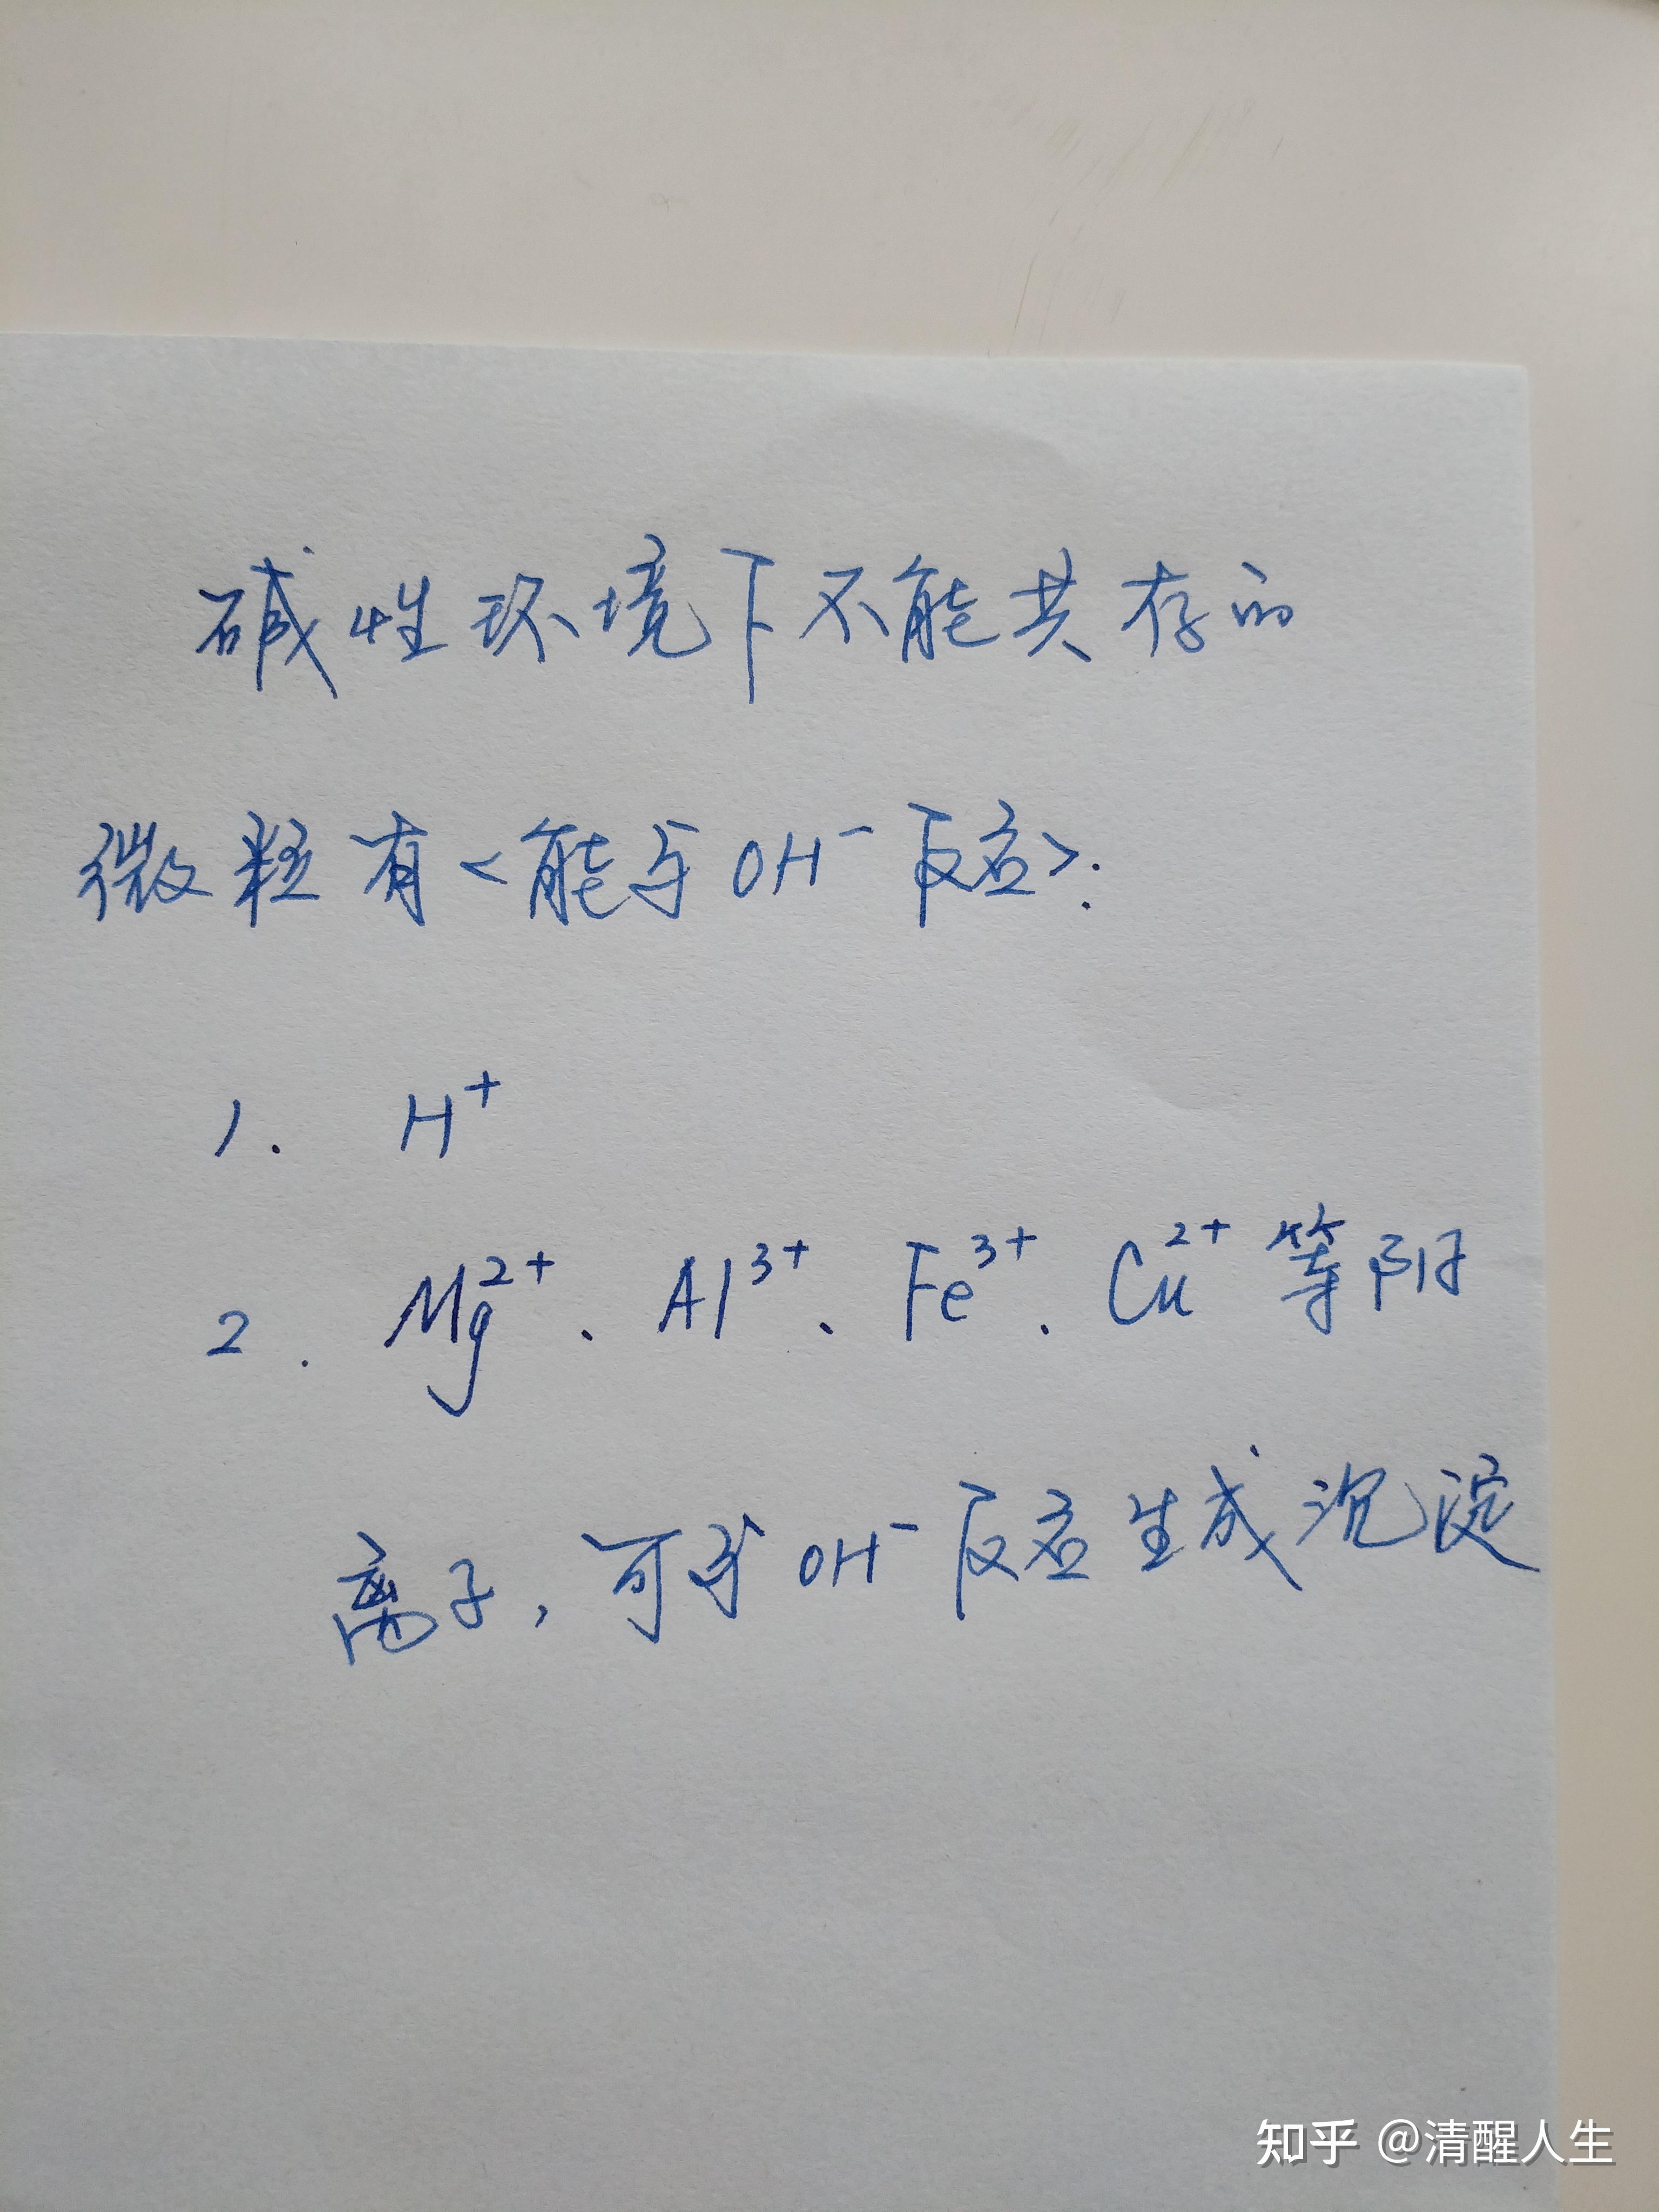 碱性环境下不能共存的
微粒有<能与OH⁻反应>:
1. H⁺
2. Mg²⁺、Al³⁺、Fe³⁺、Cu²⁺等阳
离子,可与OH⁻反应生成沉淀
知乎 @清醒人生